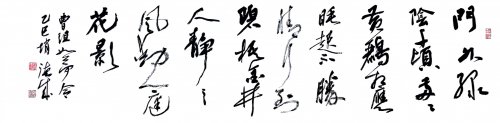 門外綠
陰千頃兩〻
黃鸝相應
睡起不勝
情行到
碧梧金井
人靜〻
風動一庭
花影
曹組如夢令
乙巳